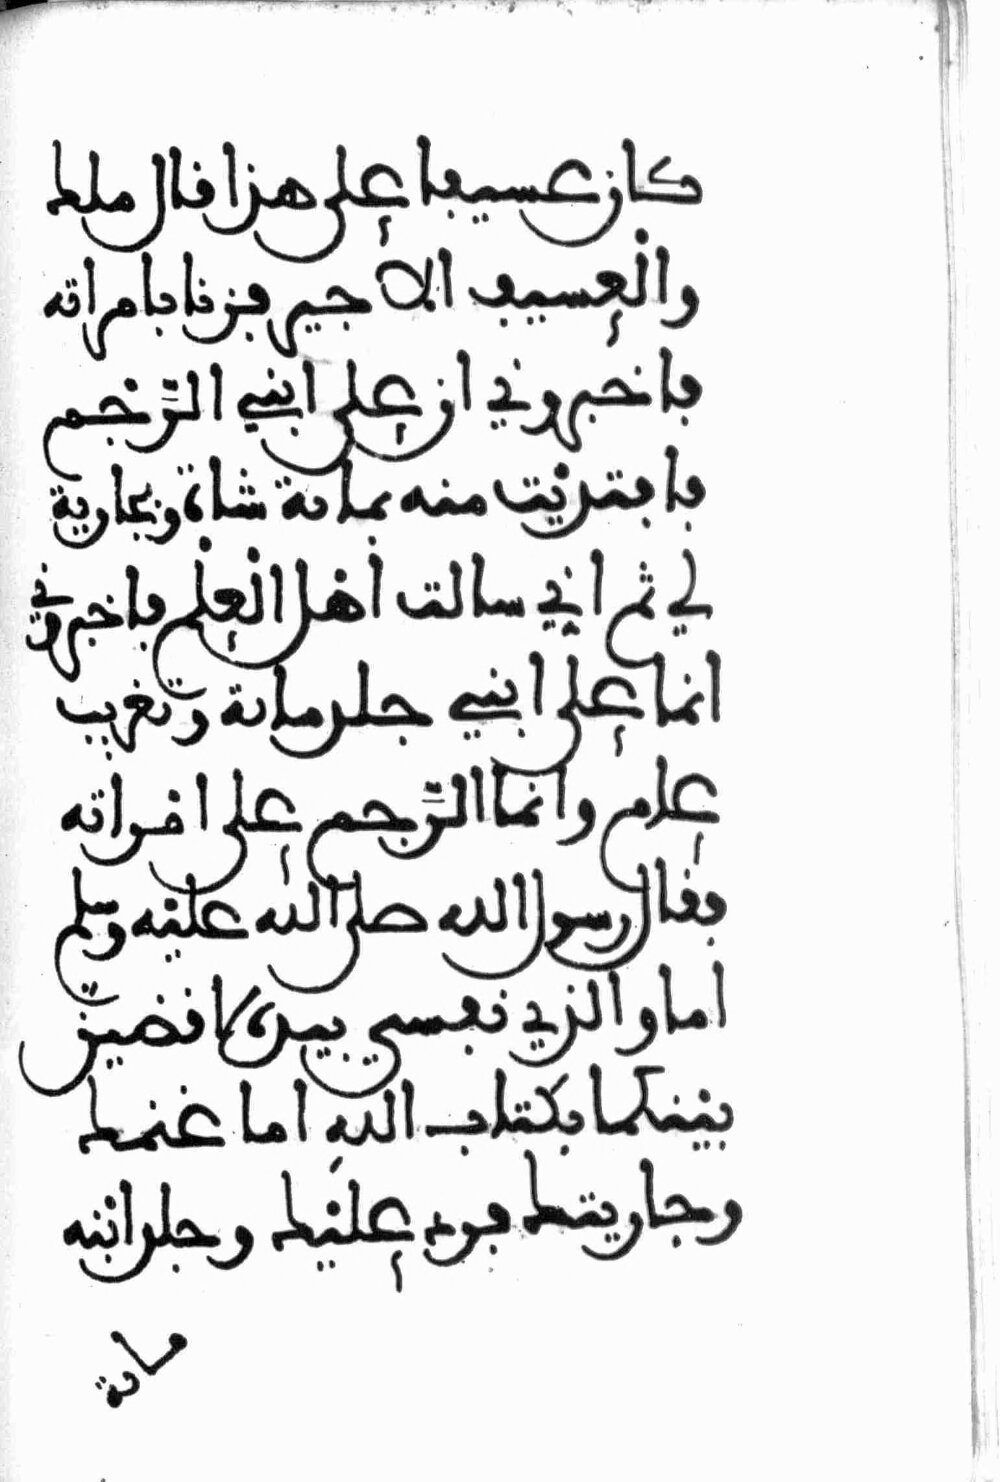 كان عسيفا على هذا قال ملك
والعسيف الاجير فزنا بامراته
فاخبروني ان على ابني الرجم
فافتديت منه بمائة شاة وبجارية
لي ثم اني سالت اهل العلم فاخبروني
انما على ابني جلد مائة وتغريب
عام وانما الرجم على امراته
فقال رسول الله صلى الله عليه وسلم
اما والذي نفسي بيده لاقضين
بينكما بكتاب الله اما غنمك
وجاريتك فرد عليك وجلد ابنه
مائة